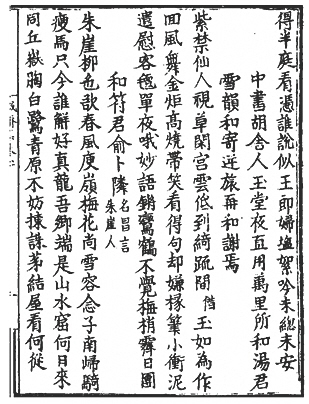 得半庭看憑誰說似王郎婦鹽絮吟来總未安
中書胡舍人玉堂夜直用萬里所和湯君
雪韻和寄逆旅再和謝焉
紫禁仙人視草閑宮雲低到綺疏間借玉妃為作
回風舞金炬高燒帶笑看得句却嫌椽筆小銜泥
遺慰客氊單夜哦妙語銷鸞鶴不覺梅梢霽日團
和符君俞卜隣名昌言朱崖人
朱崖柳也欲春風庾嶺梅花尚雪容念子南歸騎
瘦馬只今誰解好真龍吾鄉端是山水窟何日來
同丘嶽胸白鷺青原不妨揀誅茅結屋看何從